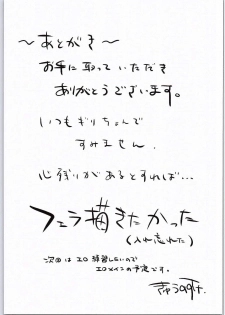 ～あとがき～
お手に取っていただき
ありがとうございます。
いつもぎりちょんで
すみません
心残りがあるとすれば…
フェラ描きたかった
(入れ忘れた)
次回はエロ練習したいので
エロメインの予定です。